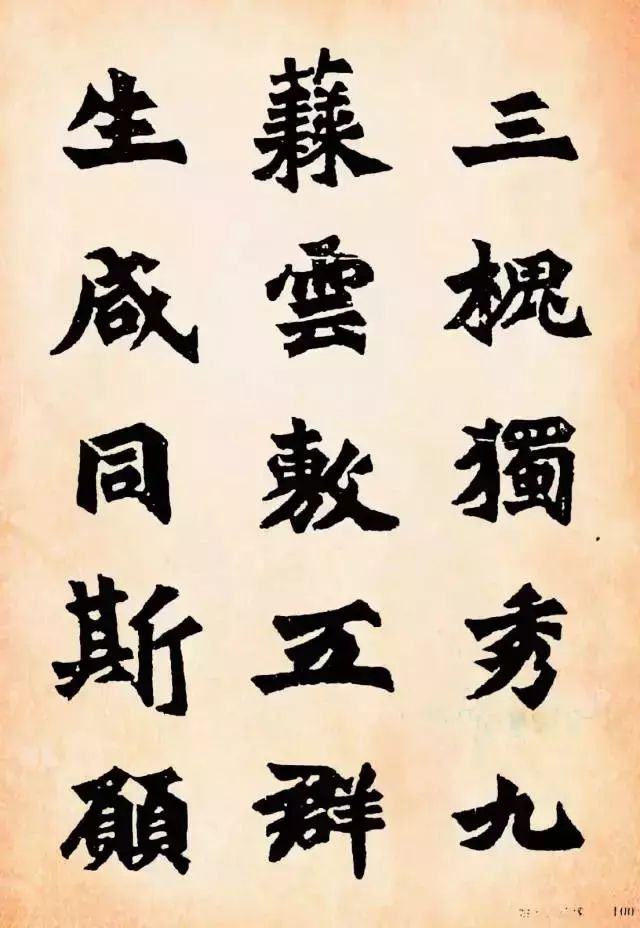 三槐獨秀九
蕀雲敷五群
生咸同斯願
100